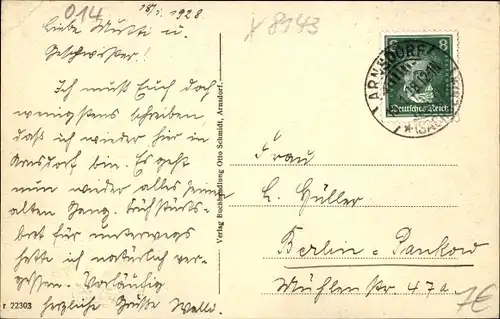 014
18/1. 1928
x 8143
Liebe Mutti u.
Geschwister!
Ich muß Euch doch
wenigstens schreiben,
daß ich wieder hier in
Arnsdorf bin. Es geht
nun wieder alles seinen
alten Gang. Frühstücks-
brot für unterwegs
hatte ich natürlich ver-
gessen. Vorläufig
herzliche Grüße Walli.
r 22303
Verlag Buchhandlung Otto Schmidt, Arnsdorf.
ARNSDORF
(SACHSEN)
8
Deutsches Reich
Frau
L. Hüller
Berlin-Pankow
Mühlen Str. 47a.
7€